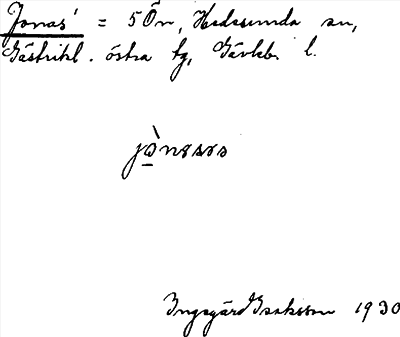 Jonas' = 5 Ön, Hedesunda sn,
Gästrikl. östra tg, Gävleb. l.
jò̱nssɷs
Ingegärd Isaksson 1930